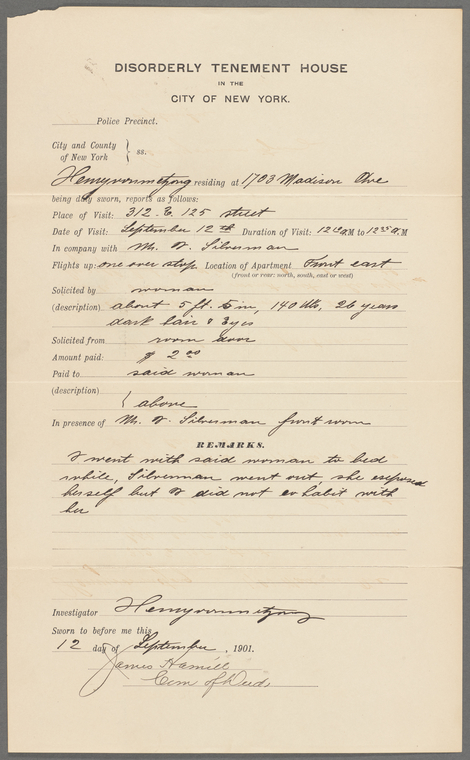 DISORDERLY TENEMENT HOUSE
IN THE
CITY OF NEW YORK.
Police Precinct.
City and County
of New York } ss.
Henry residing at 1703 Madison Ave
being duly sworn, reports as follows:
Place of Visit: 312 E 125 street
Date of Visit: September 12th Duration of Visit: 12 A.M to 12 35 A.M
In company with M. I. Silverman
Flights up: one over stoop Location of Apartment Front east
(front or rear; north, south, east or west)
Solicited by woman
(description) about 5 ft. 6 in, 140 lbs, 26 years
dark hair & Eyes
Solicited from room door
Amount paid: $ 2 00
Paid to said woman
(description) { above
In presence of M. I. Silverman front room
REMARKS.
I went with said woman to bed
while, Silverman went out, she exposed
herself but I did not cohabit with
her
Investigator Henry
Sworn to before me this
12 day of September, 1901.
James Hamill
Com of Deeds